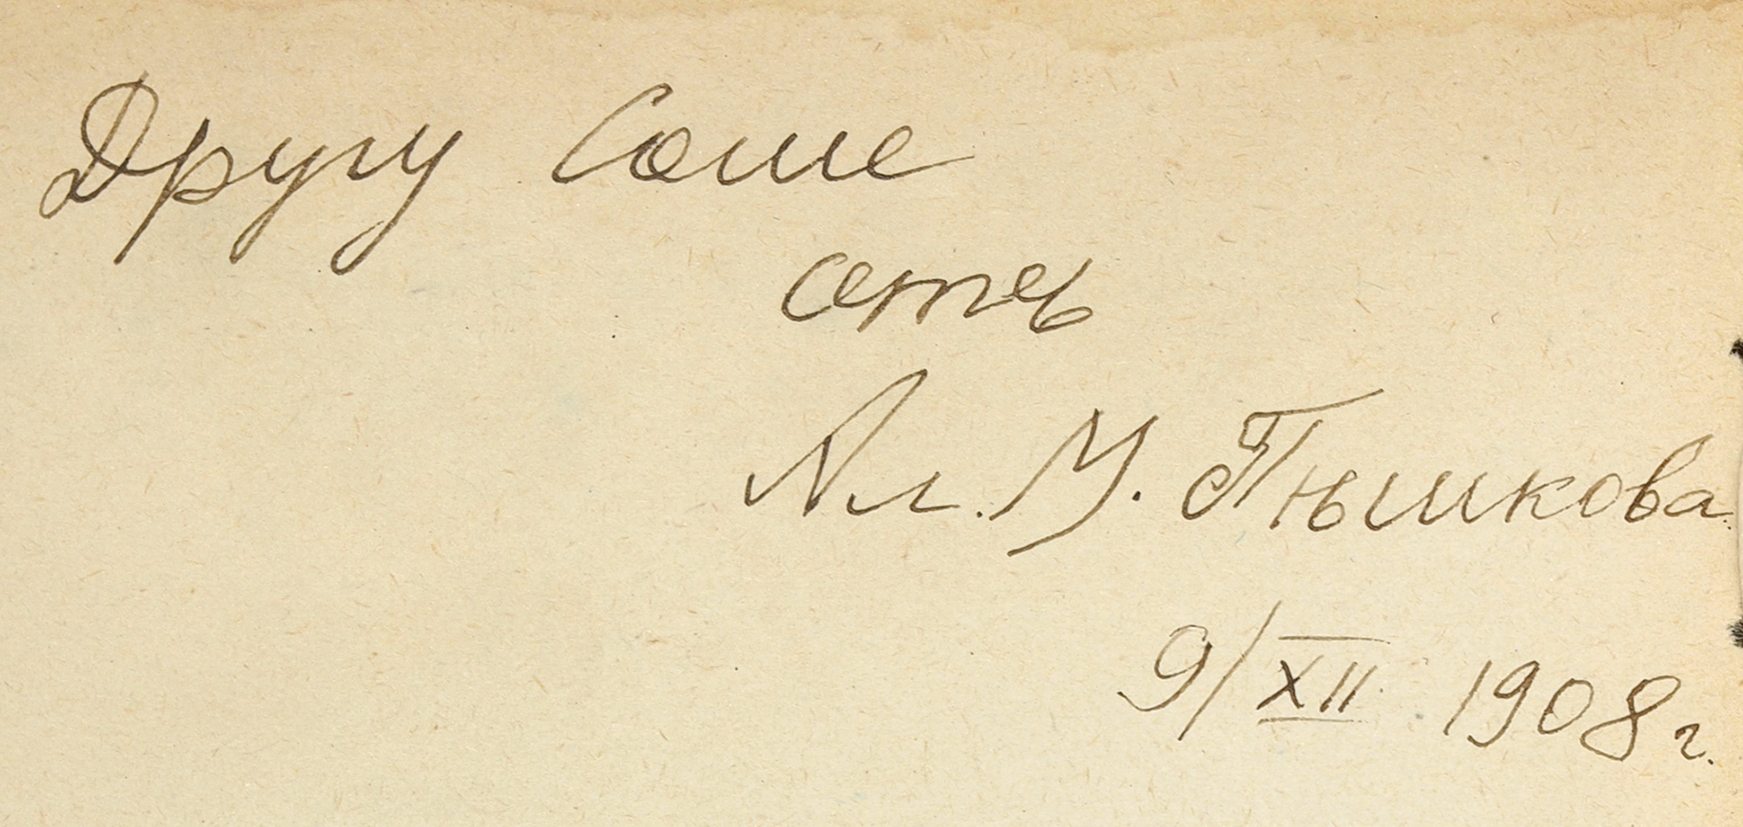 Другу Саше
отъ
Ал. М. Пышкова
9/XII 1908 г.